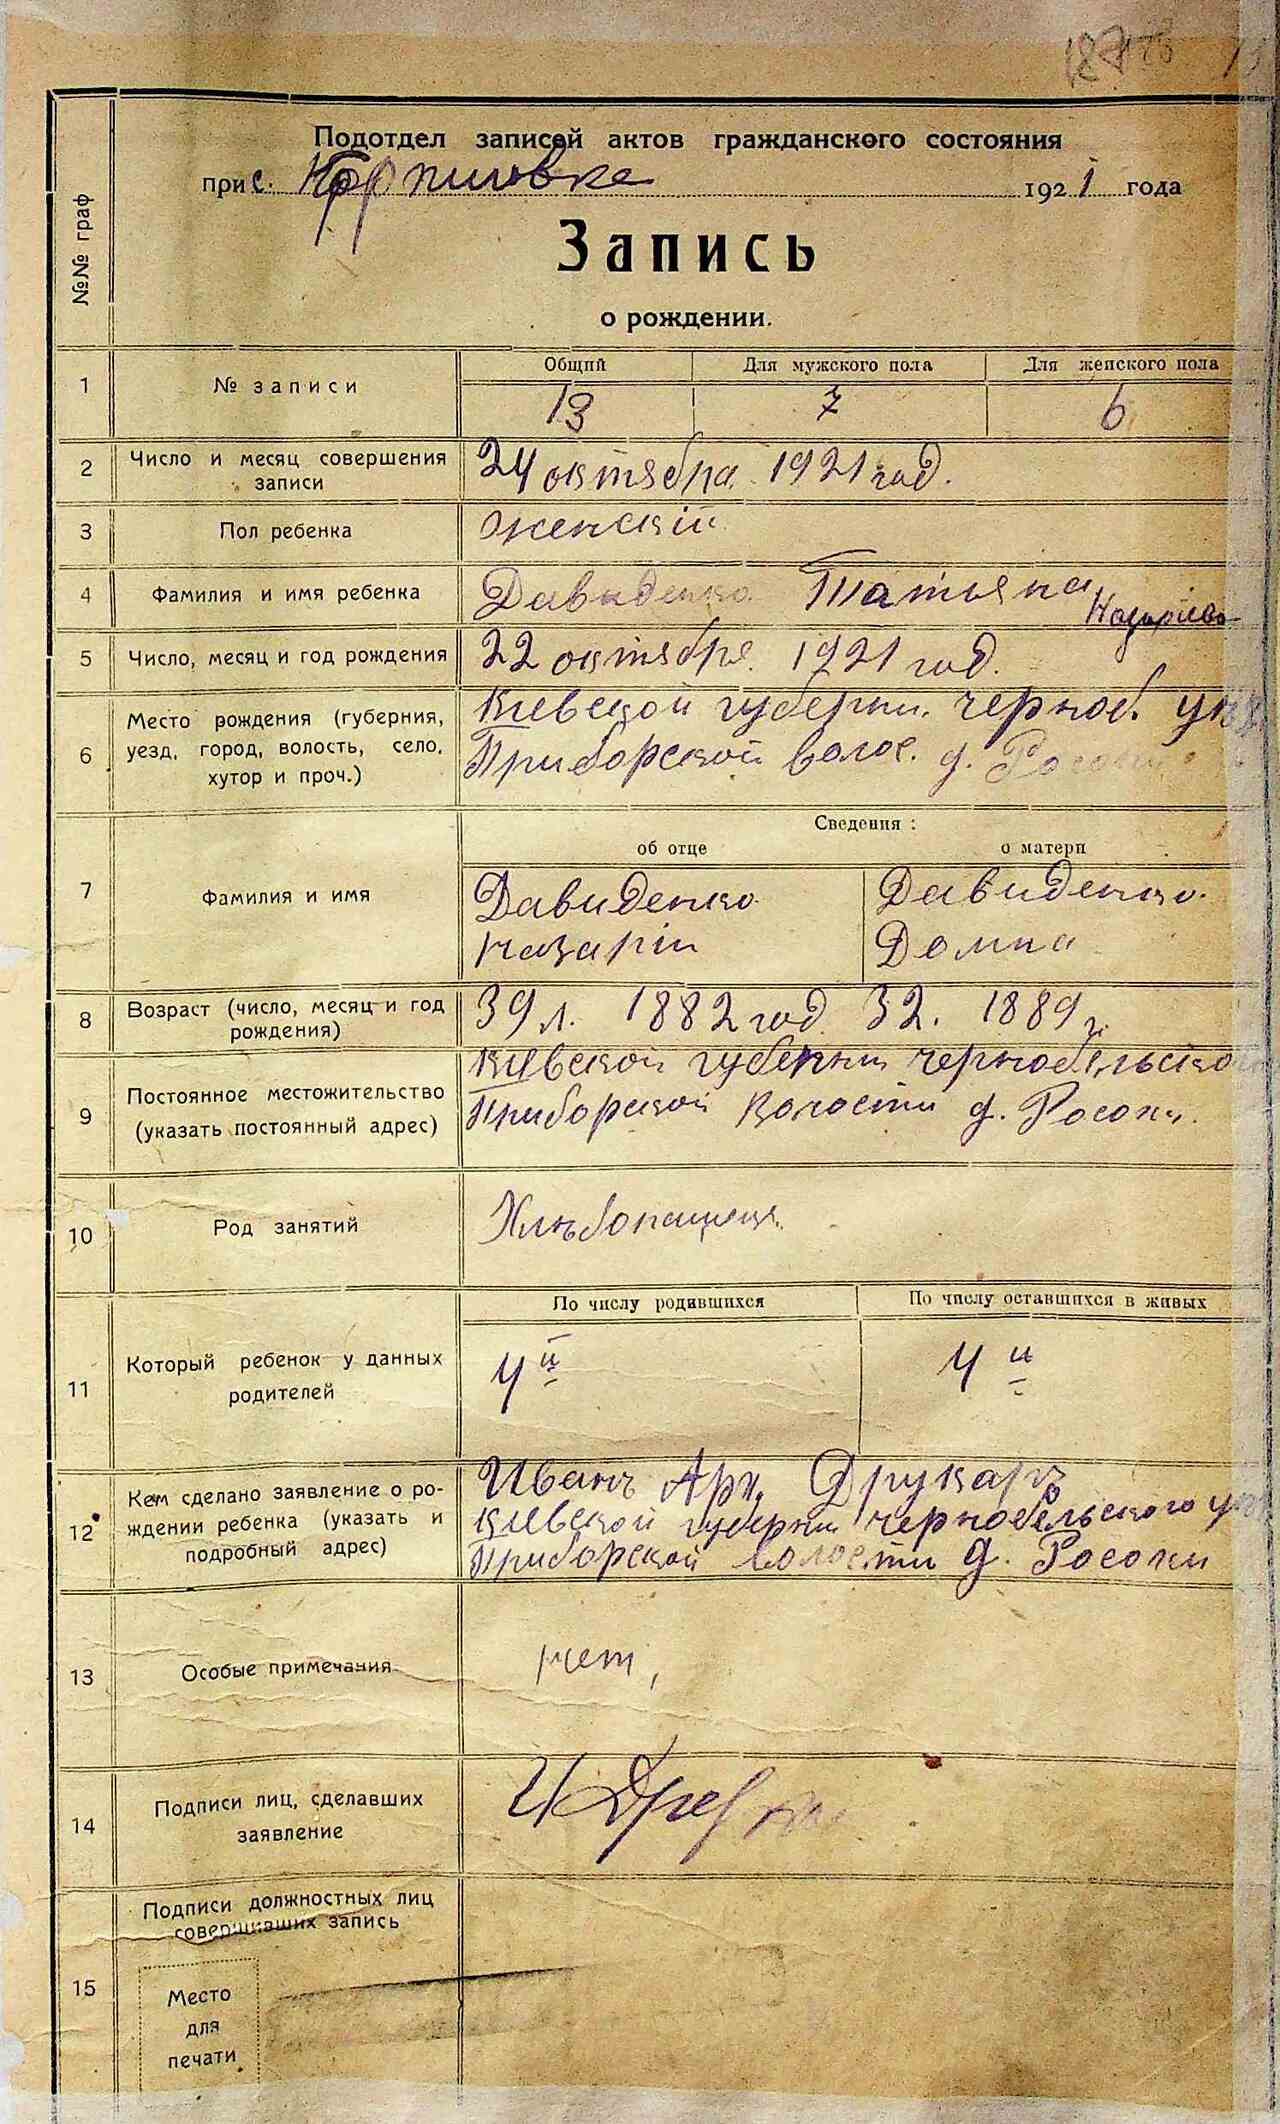 Подотдел записей актов гражданского состояния
при с. 1921 года
№№ граф
Запись
о рождении.
1 № записи Общий Для мужского пола Для женского пола
13 7 6
2 Число и месяц совершения
записи
24 октября 1921 год.
3 Пол ребенка женскій
4 Фамилия и имя ребенка Давиденко Татьяна
5 Число, месяц и год рождения 22 октября 1921 год.
6 Место рождения (губерния,
уезд, город, волость, село,
хутор и проч.)
Киевской губернии черноб.
Приборской волос. д.
Сведения:
об отце о матери
7 Фамилия и имя
Давиденко Давиденко
Назарій Домна
8 Возраст (число, месяц и год
рождения)
39 л. 1882 год 32. 1889 г.
9 Постоянное местожительство
(указать постоянный адрес)
Киевской губернии
Приборской волости д. Росохи
10 Род занятий Хлѣбопашец
11 Который ребенок у данных
родителей
По числу родившихся По числу оставшихся в живых
4й 4й
12 Кем сделано заявление о ро-
ждении ребенка (указать и
подробный адрес)
Иванъ Друкаръ
Киевской губернии
Приборской волости д. Росохи
13 Особые примечания нет,
14 Подписи лиц, сделавших
заявление
15 Подписи должностных лиц
совершивших запись
Место
для
печати